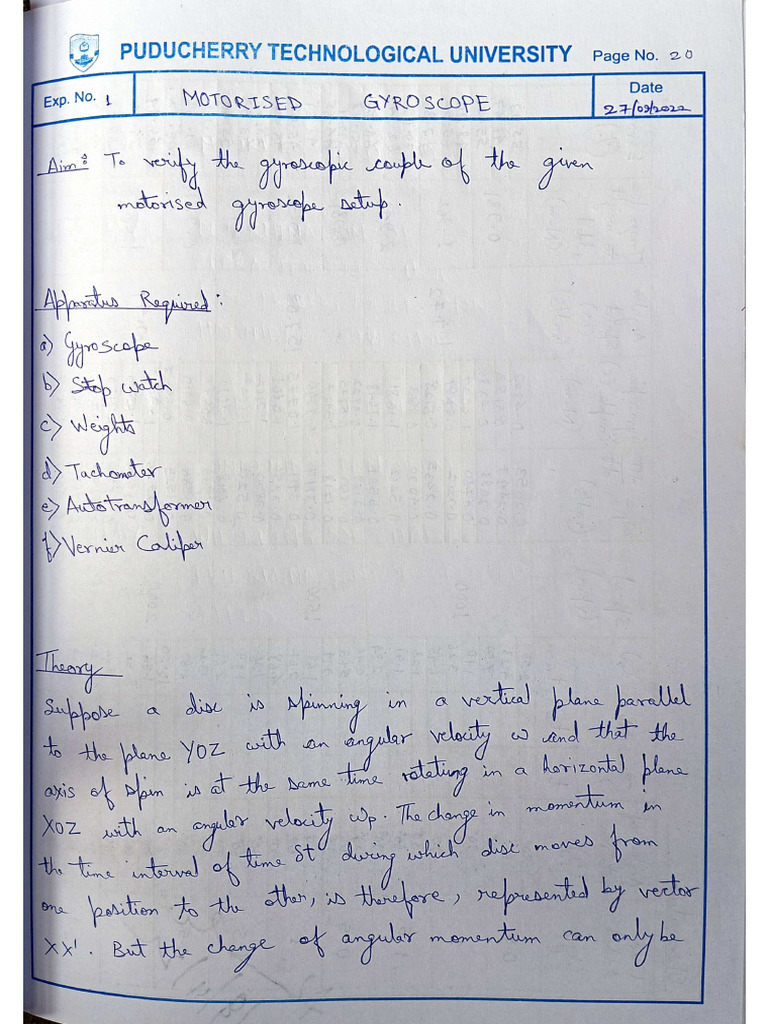 PUDUCHERRY TECHNOLOGICAL UNIVERSITY Page No. 20
Exp. No. 1 MOTORISED GYROSCOPE Date
27/09/2022
Aim: To verify the gyroscopic couple of the given
motorised gyroscope setup.
Apparatus Required:
a) Gyroscope
b) Stop watch
c) Weights
d) Tachometer
e) Autotransformer
f) Vernier Caliper
Theory
Suppose a disc is spinning in a vertical plane parallel
to the plane YOZ with an angular velocity ω and that the
axis of spin is at the same time rotating in a horizontal plane
XOZ with an angular velocity ωp. The change in momentum in
the time interval of time δt during which disc moves from
one position to the other, is therefore, represented by vector
XX'. But the change of angular momentum can only be